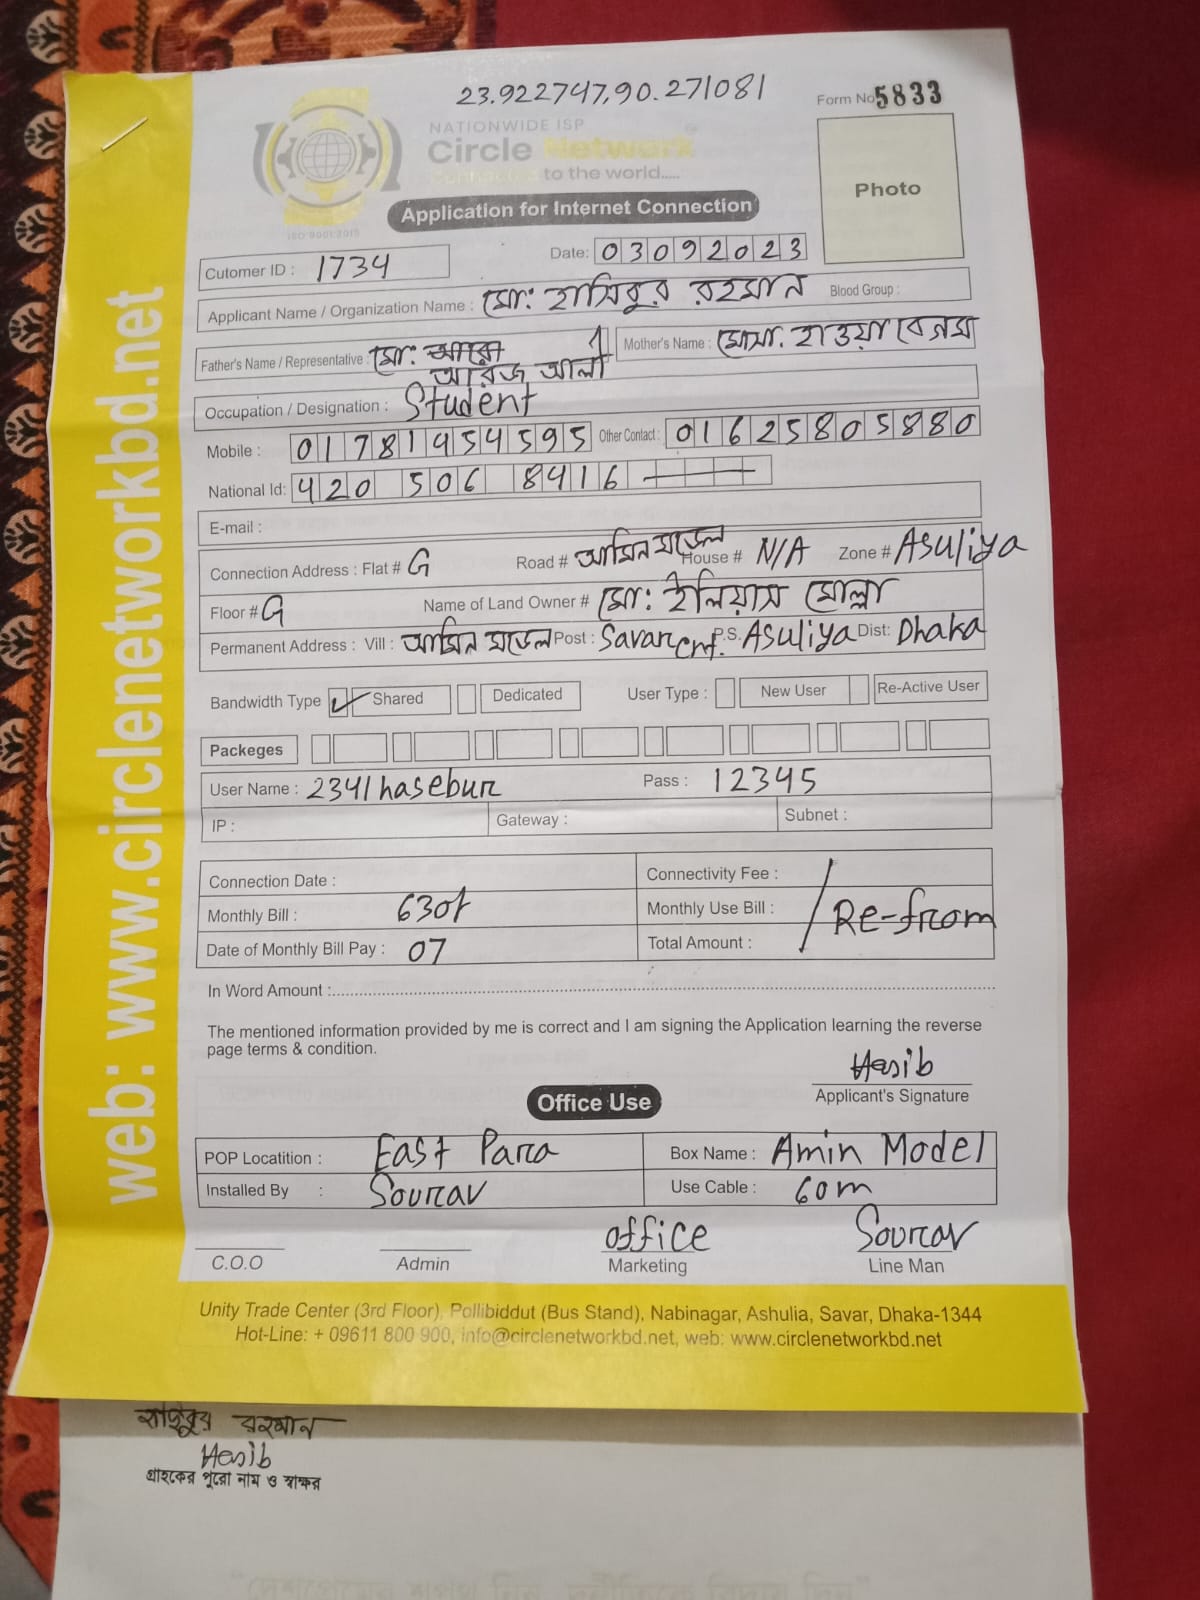 23.922747,90.271081
Form No 5833
NATIONWIDE ISP
Circle Network
Connected to the world.....
ISO 9001:2015
Photo
Application for Internet Connection
Cutomer ID : 1734
Date: 03092023
Applicant Name / Organization Name : মো: হাসিবুর রহমান Blood Group :
Father's Name / Representative : মো: আরজ আলী Mother's Name : মোসা. হাওয়া বেগম
Occupation / Designation : Student
Mobile : 01781454595 Other Contact : 01625805880
National Id: 420 506 8416
E-mail :
Connection Address : Flat # G Road # আমিন মডেল House # N/A Zone # Asuliya
Floor # G Name of Land Owner # মো: ইলিয়াস মোল্লা
Permanent Address : Vill : আমিন মডেল Post : Savar Cnt. P.S. Asuliya Dist: Dhaka
Bandwidth Type ✓ Shared Dedicated User Type : New User Re-Active User
Packeges
User Name : 2341hasebur Pass : 12345
IP : Gateway : Subnet :
Connection Date : Connectivity Fee :
Monthly Bill : 630/- Monthly Use Bill : Re-from
Date of Monthly Bill Pay : 07 Total Amount :
In Word Amount :
The mentioned information provided by me is correct and I am signing the Application learning the reverse
page terms & condition.
Hasib
Applicant's Signature
Office Use
POP Locatition : East Para Box Name : Amin Model
Installed By : Sourav Use Cable : 60m
office Sourav
C.O.O Admin Marketing Line Man
Unity Trade Center (3rd Floor), Pallibiddut (Bus Stand), Nabinagar, Ashulia, Savar, Dhaka-1344
Hot-Line: + 09611 800 900, info@circlenetworkbd.net, web: www.circlenetworkbd.net
web: www.circlenetworkbd.net
হাসিবুর রহমান
Hasib
গ্রাহকের পুরো নাম ও স্বাক্ষর